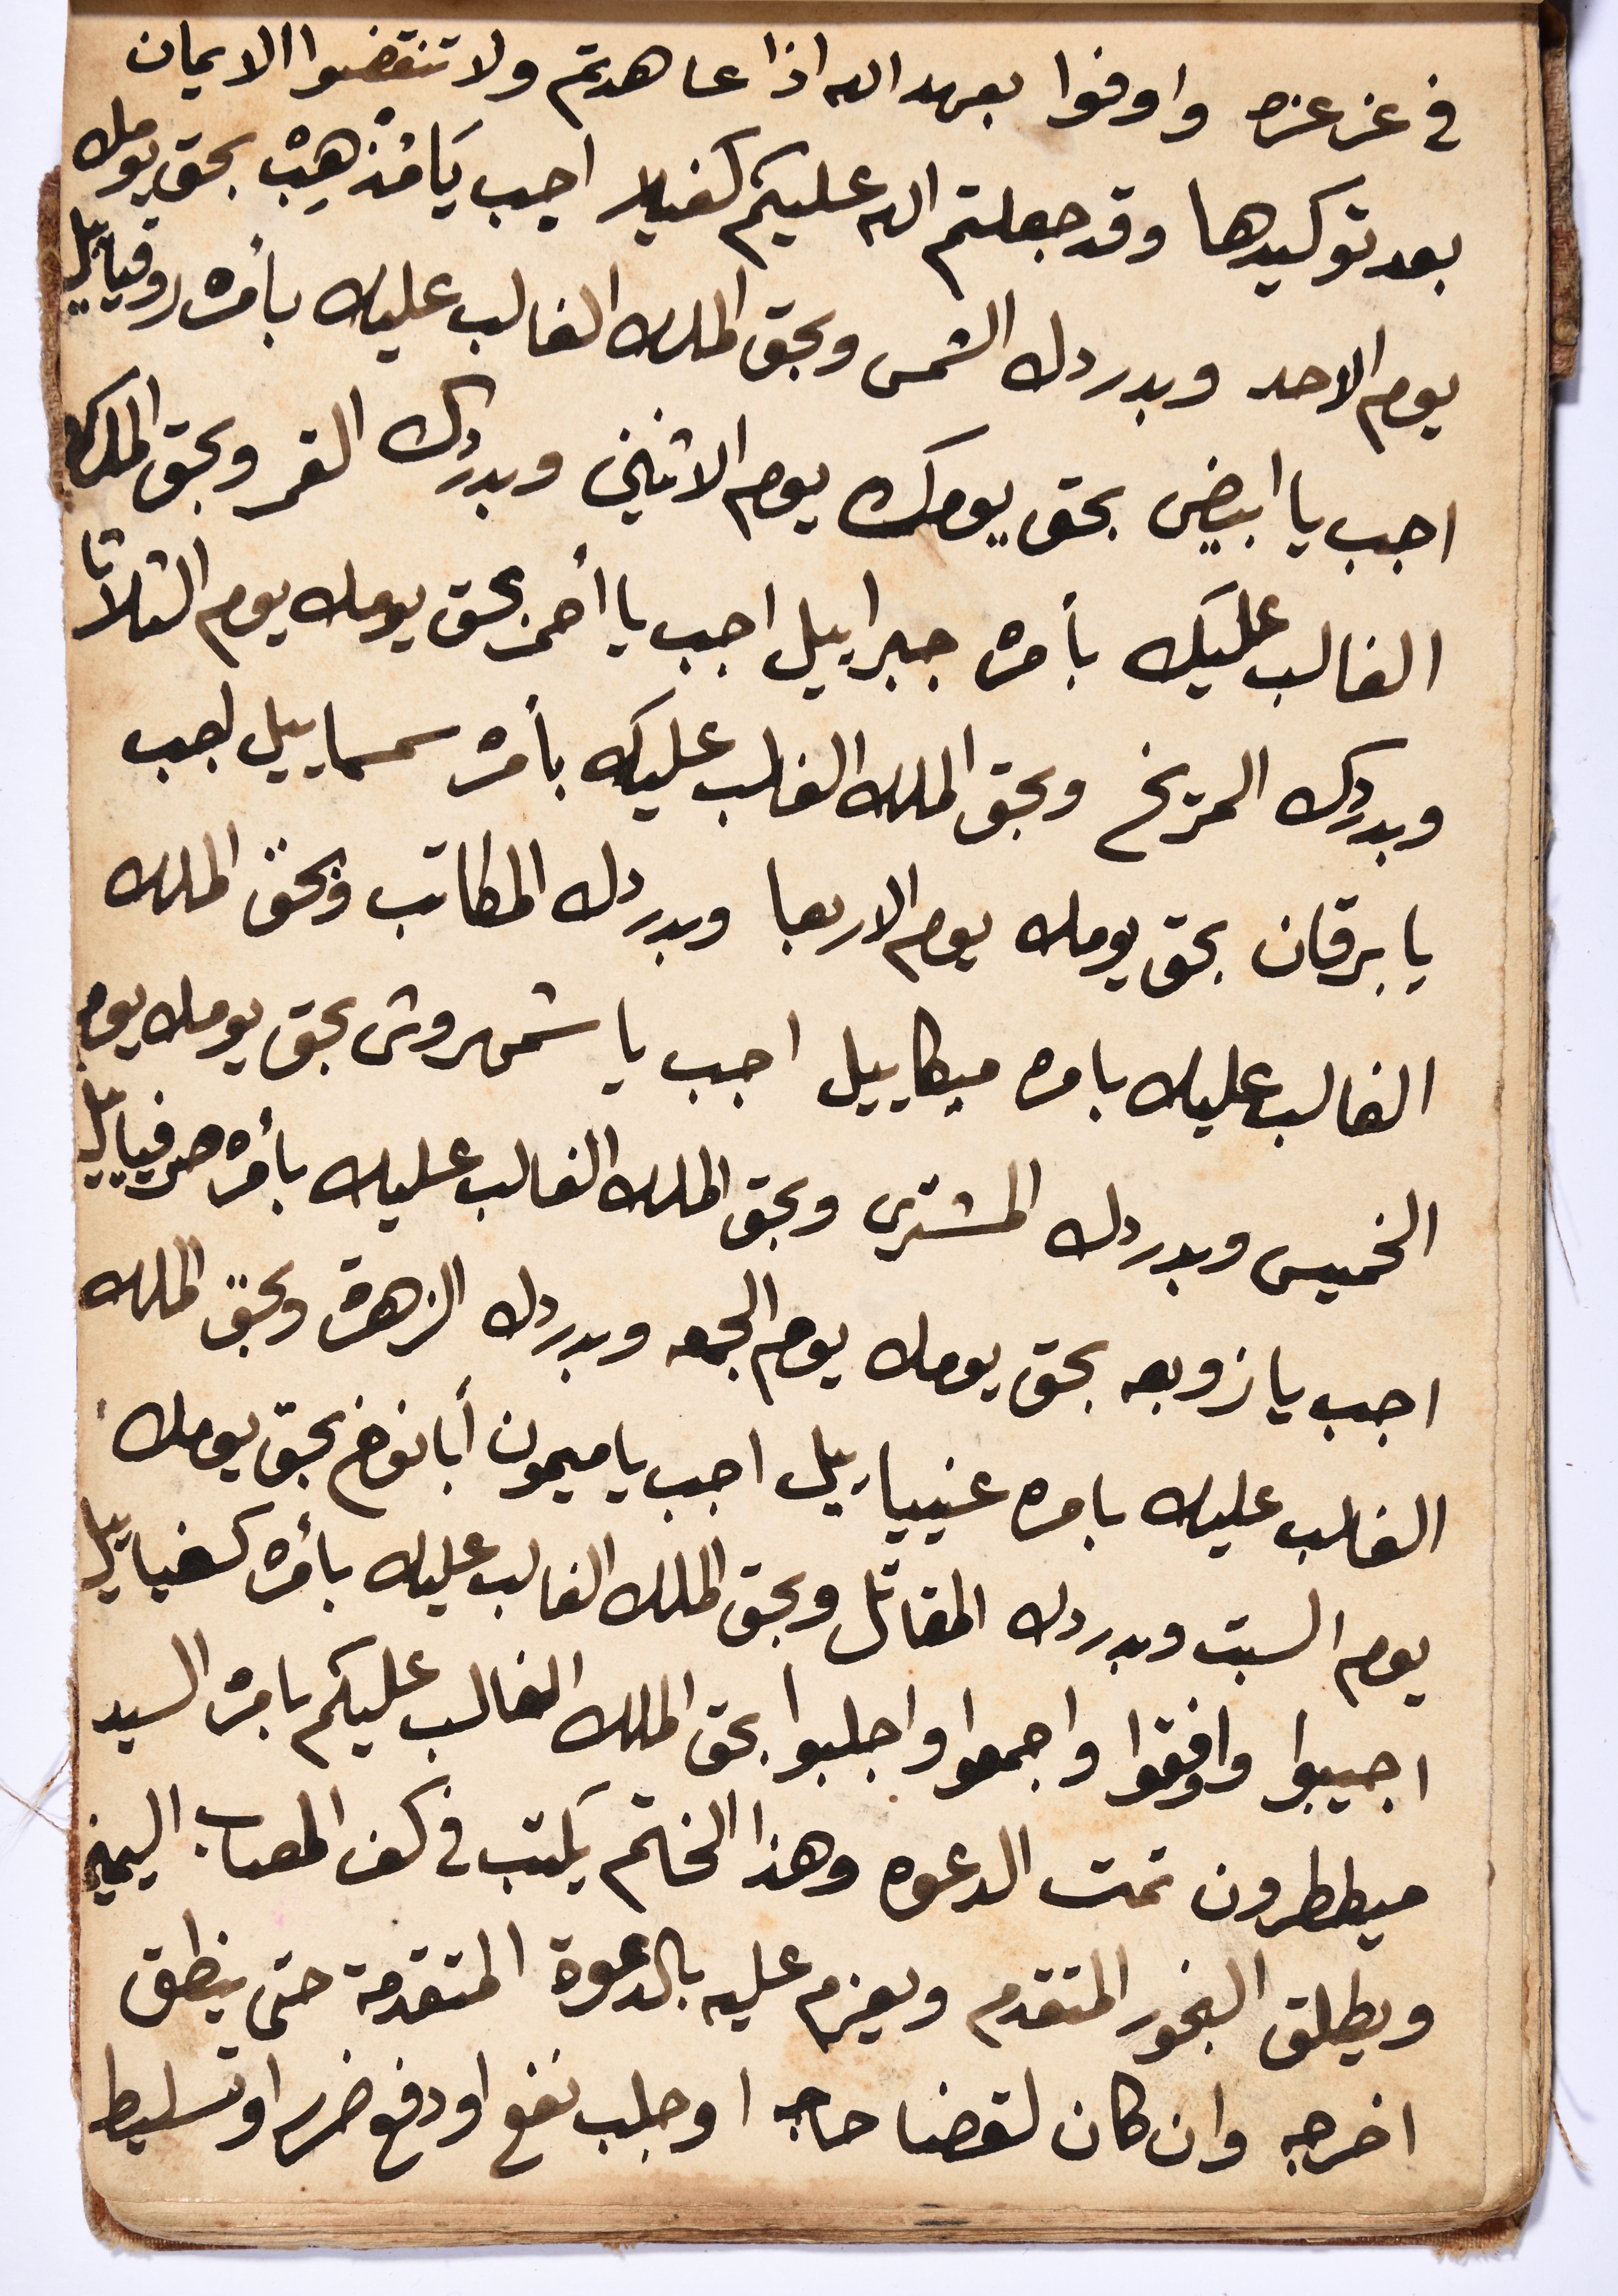 في عز عزه واوفوا بعهد الله اذا عاهدتم ولا تنقضوا الايمان
بعد توكيدها وقد جعلتم الله عليكم كفيلا اجب يَا مُذْهِبْ بحق يومك
يوم الاحد وبدردك الشمس وبحق الملك الغالب عليك بأمره روقياييل
اجب يا ابيض بحق يومك يوم الاثنين وبدردك القمر وبحق الملك
الغالب عليك بأمره جبراييل اجب يا أحمر بحق يومك يوم الثلاثا
وبدردك المريخ وبحق الملك الغالب عليك بأمره سمساييل اجب
يا برقان بحق يومك يوم الاربعا وبدردك المكاتب وبحق الملك
الغالب عليك بامره ميكاييل اجب يا شمهروش بحق يومك يوم
الخميس وبدردك المشتري وبحق الملك الغالب عليك بأمره صرفياييل
اجب يا زوبعه بحق يومك يوم الجمعه وبدردك الزهرة وبحق الملك
الغالب عليك بامره عنيياييل اجب يا ميمون أبا نوخ بحق يومك
يوم السبت وبدردك المقاتل وبحق الملك الغالب عليك بأمره كسفياييل
اجيبوا وافقوا واجمعوا واجلبوا بحق الملك الغالب عليكم بامره السيد
ميططرون تمت الدعوه وهذا الخاتم يكتب في كف المصاب اليمين
ويطلق البخور المتقدم ويعزم عليه بالدعوة المتقدمة حتى ينطق
اخرجه وان كان لقضا حاجه او جلب نفع او دفع ضرر او تسليط